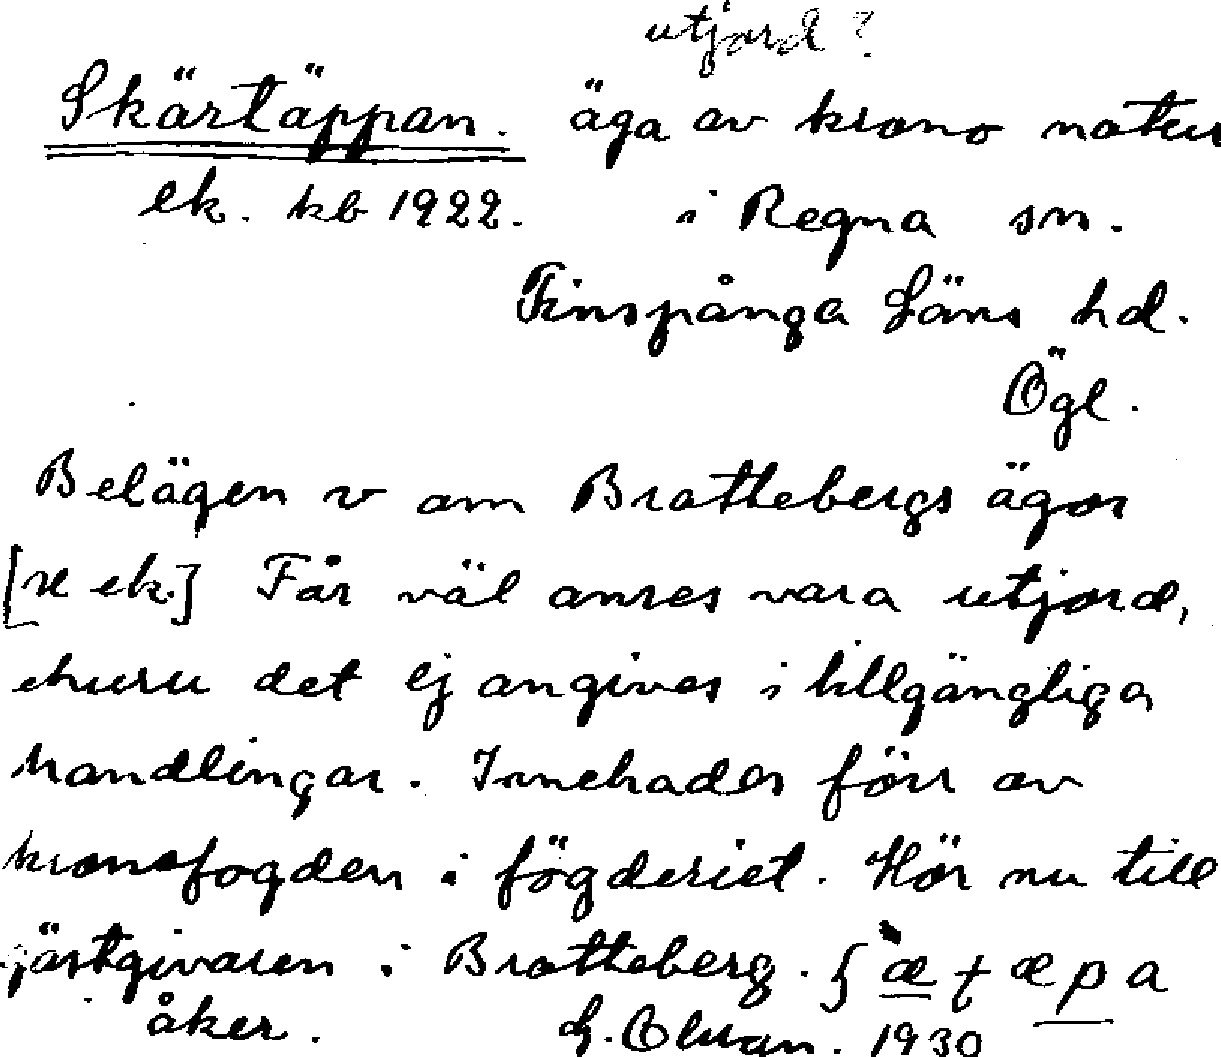 utjord?
Skärtäppan. äga av krono natur
ek. kb 1922. i Regna sn.
Finspånga Läns hd.
Ögl.
Belägen v om Brattebergs ägor
[ek.] Får väl anses vara utjord,
ehuru det ej angives i tillgängliga
handlingar. Innehades förr av
kronofogden i fögderiet. Hör nu till
jästgivaren i Bratteberg.
åker. G. 1930